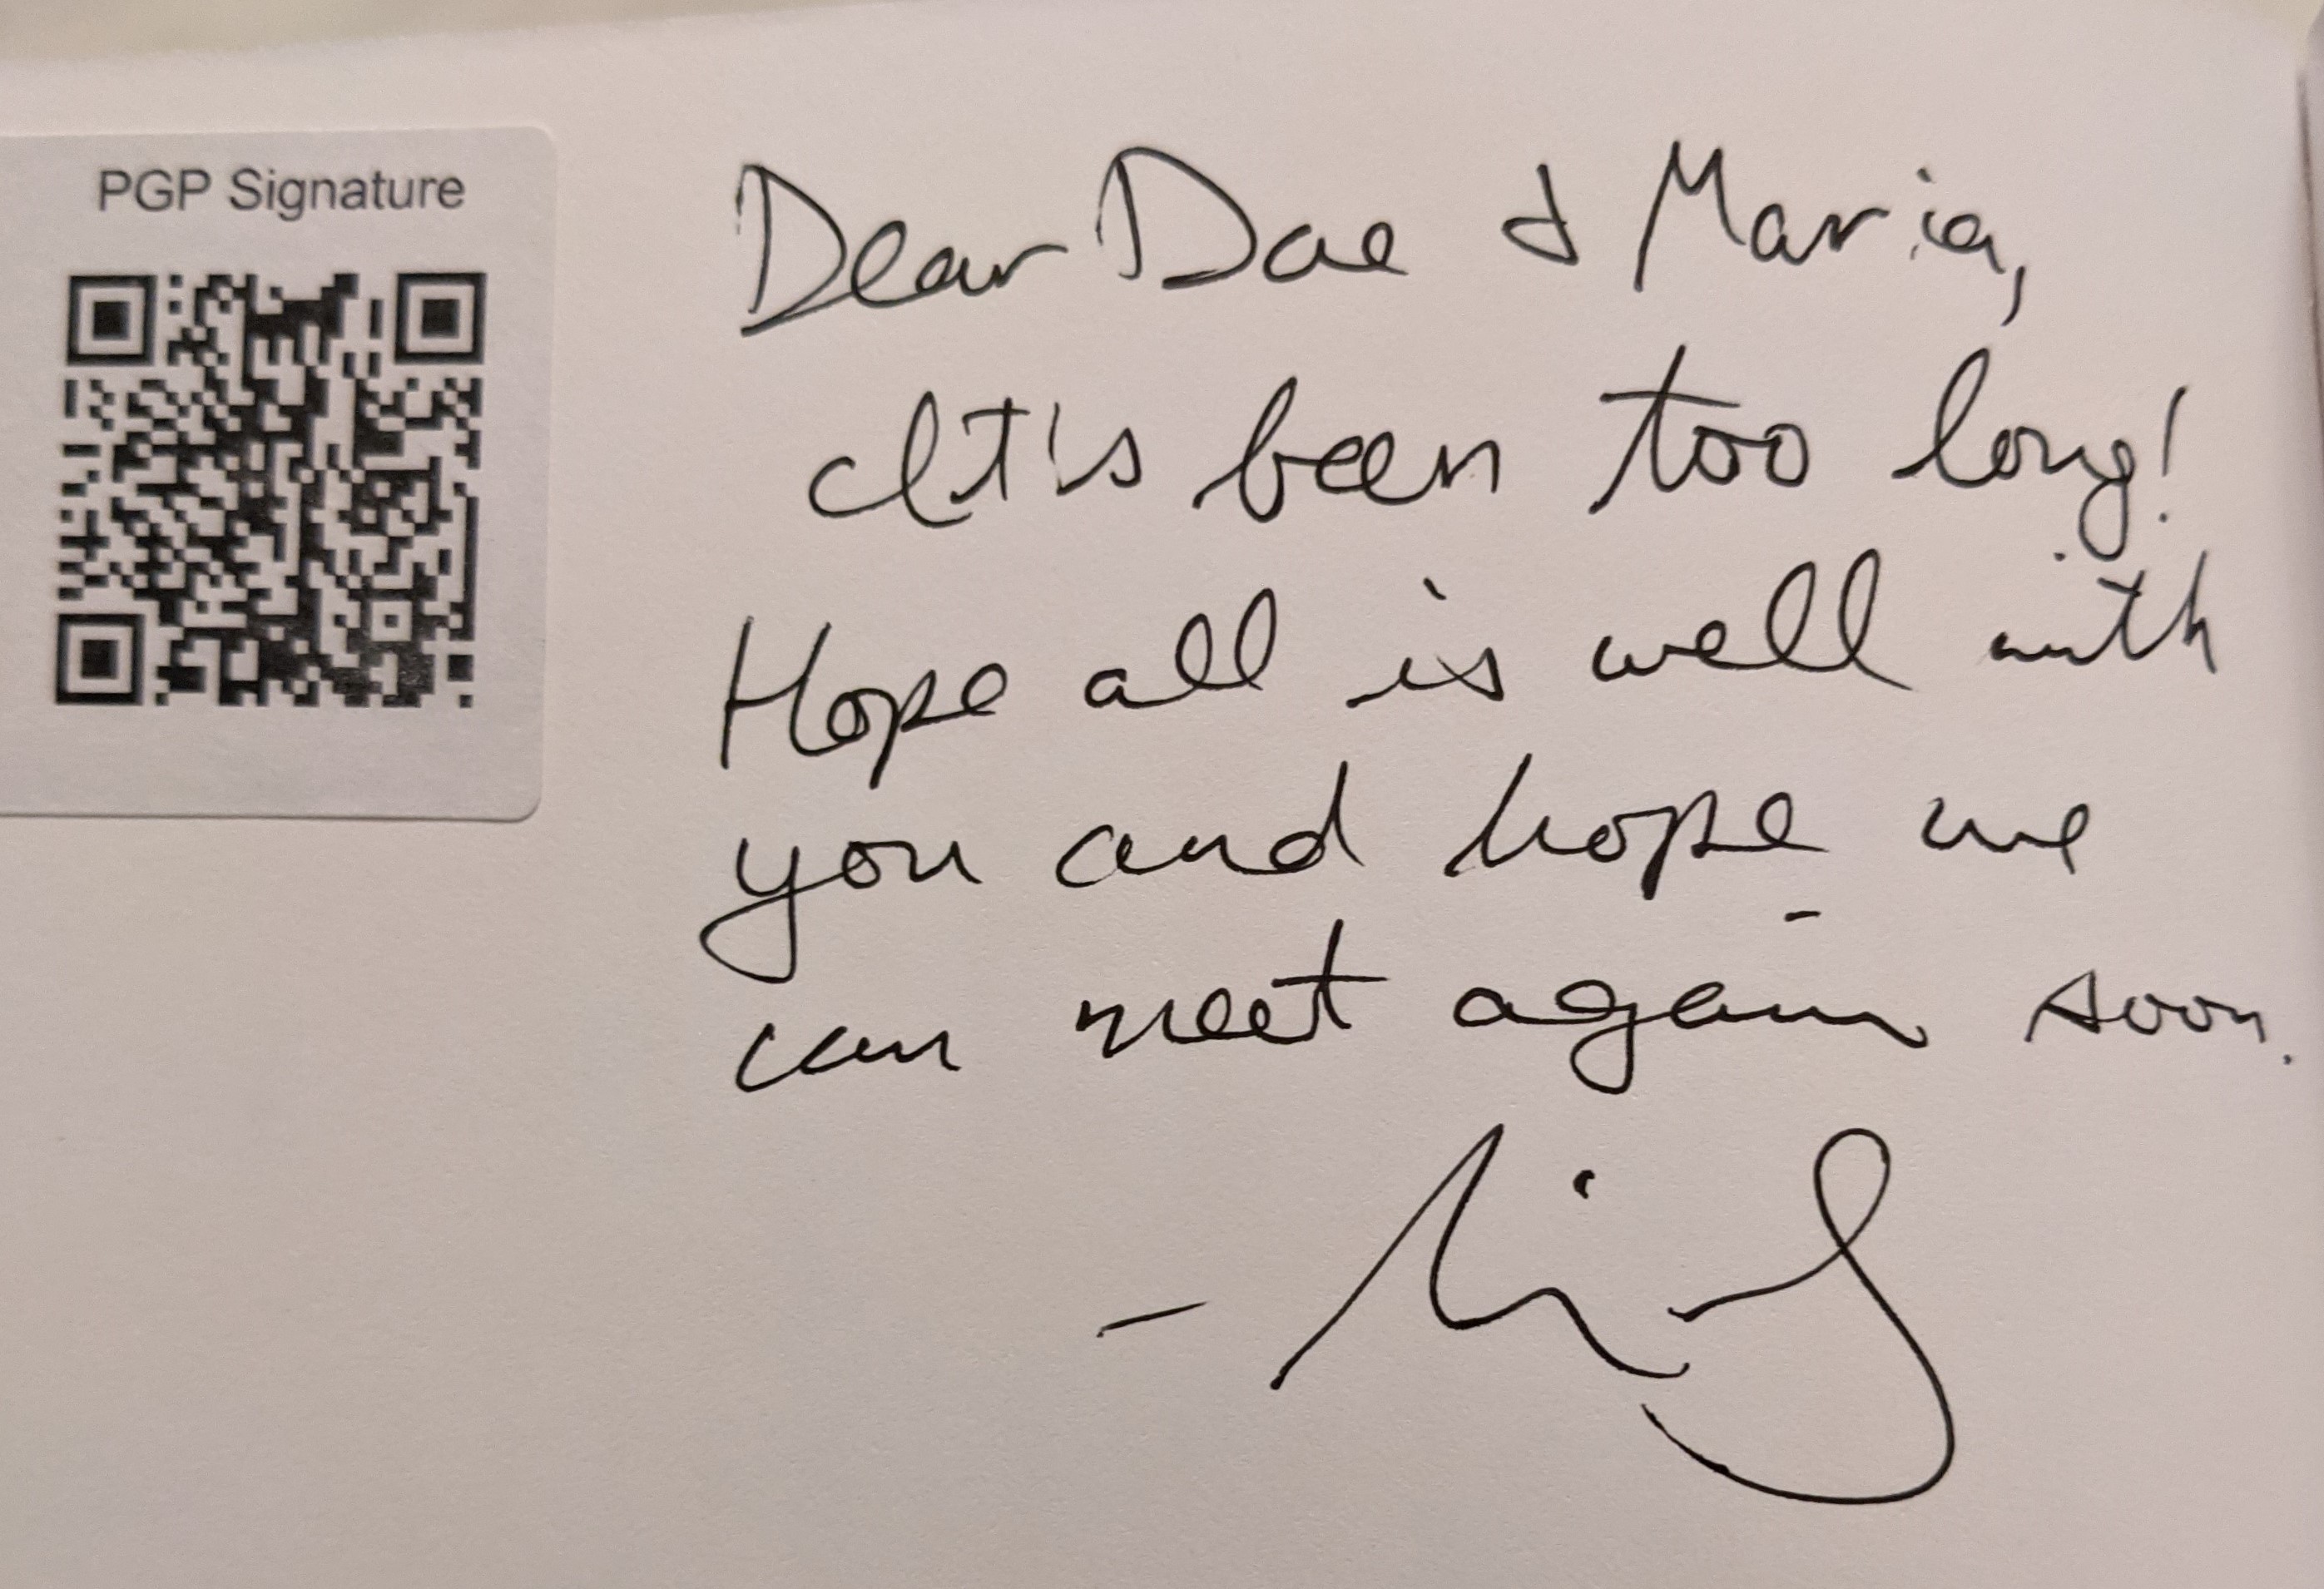 PGP Signature
Dear Dae & Maria,
It's been too long!
Hope all is well with
you and hope we
can meet again soon.